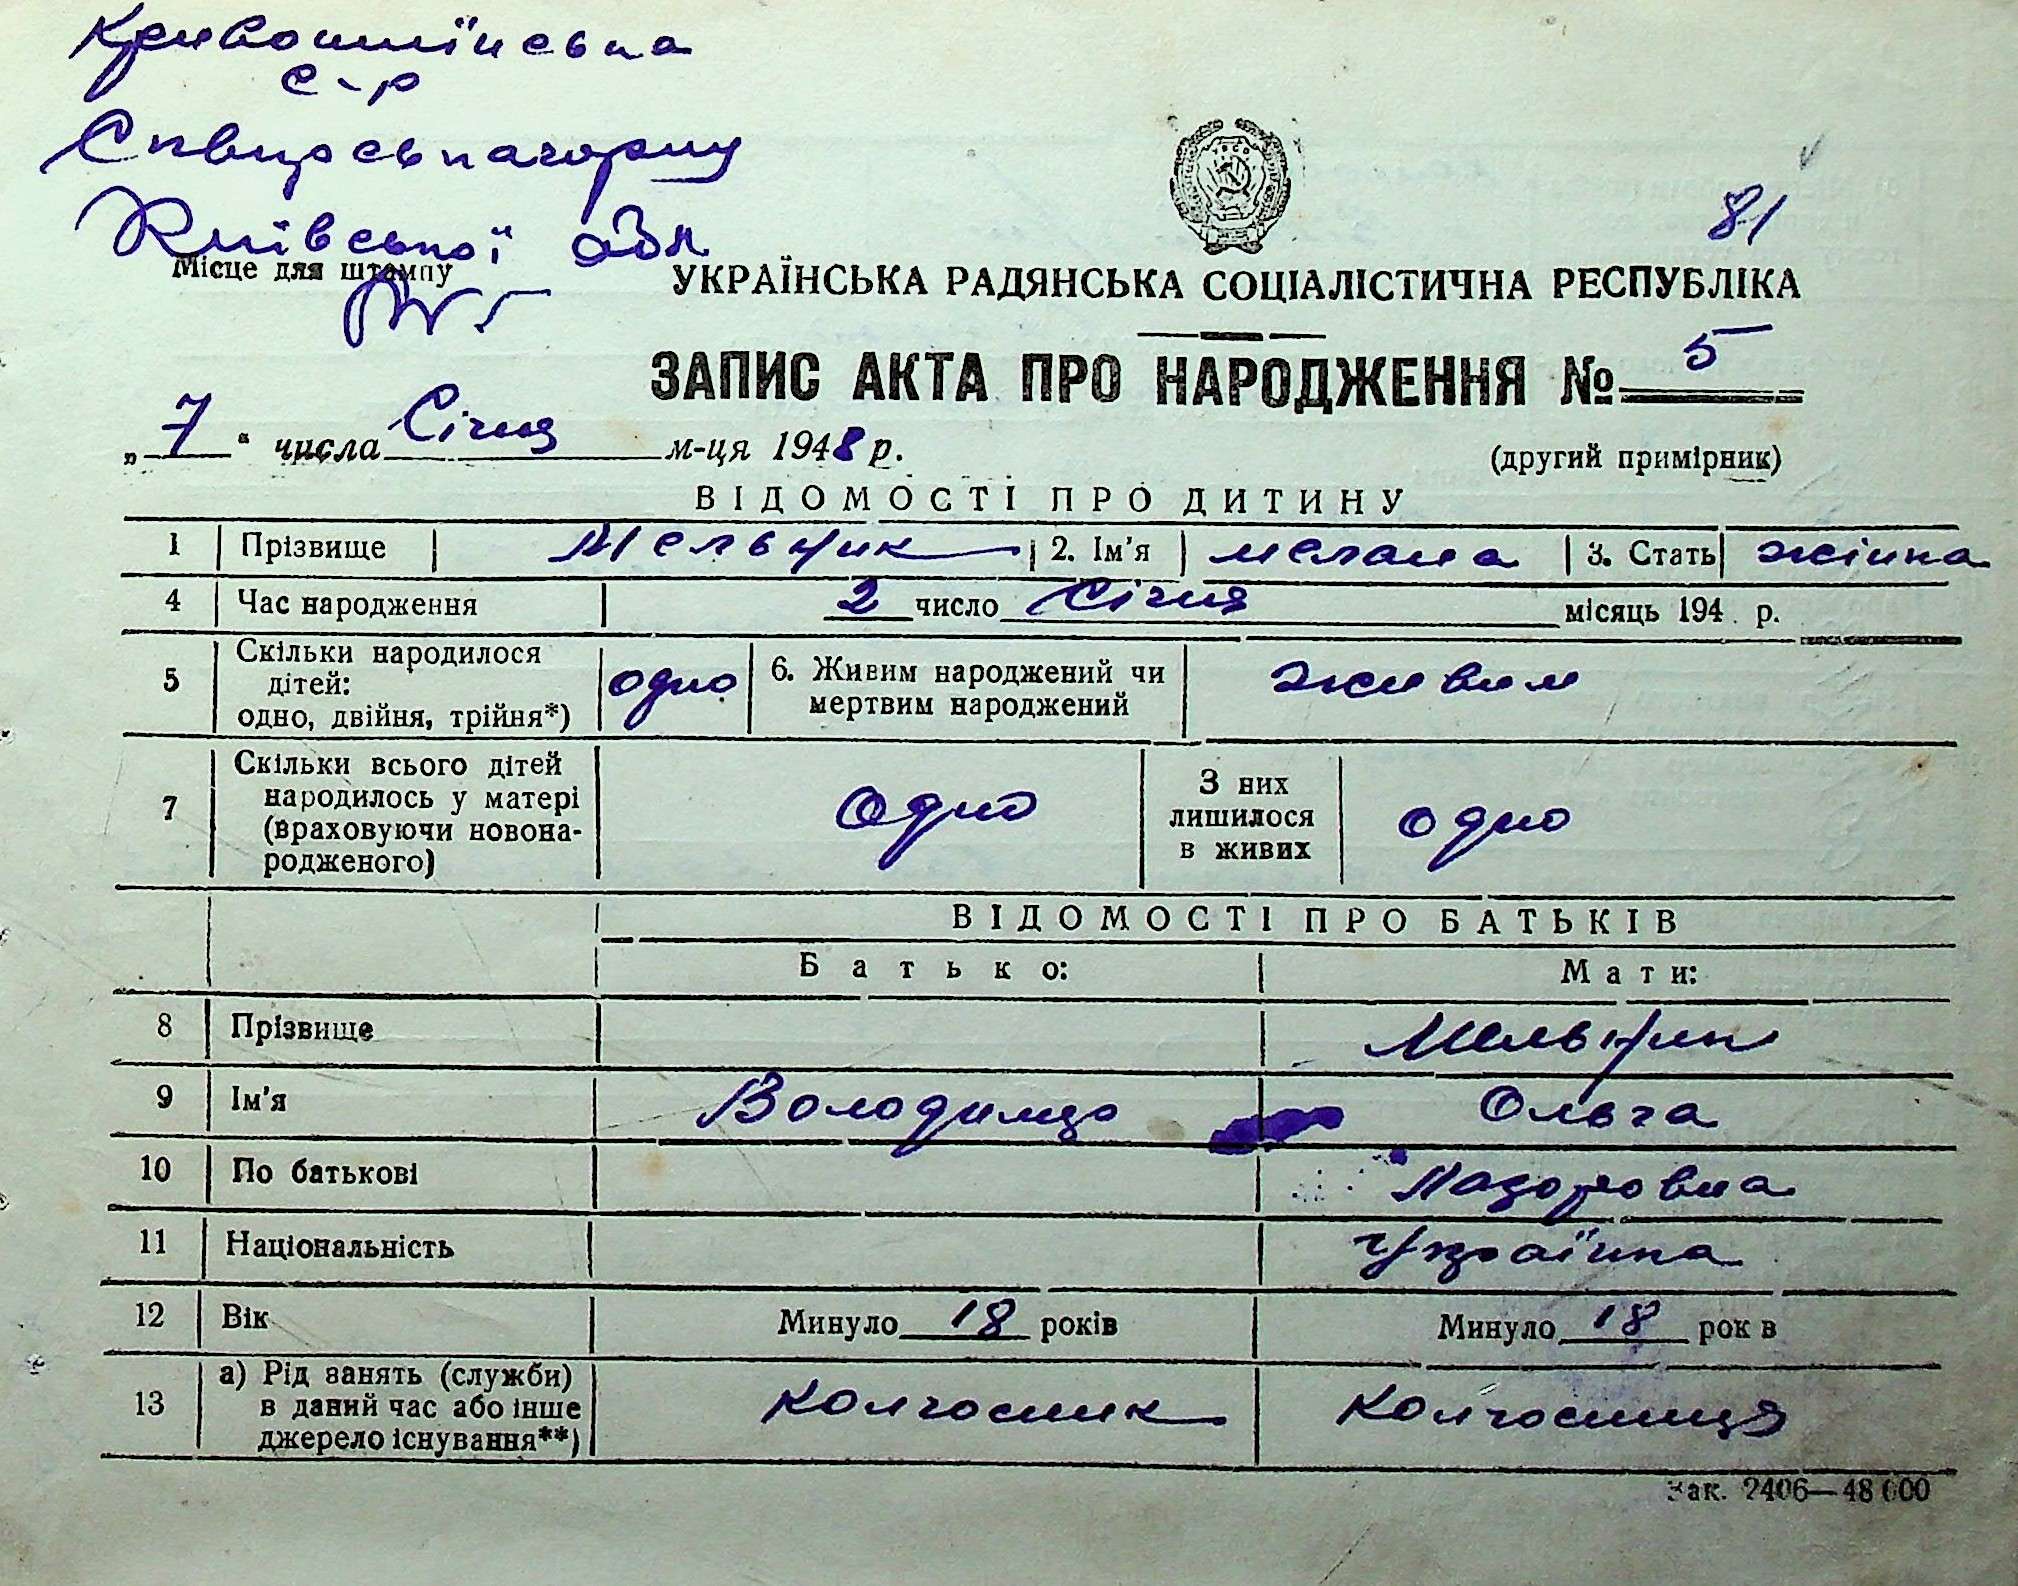 Кривошиїнська
с-р
Сквирського р-ну
Київської обл
Місце для штампу
81
УКРАЇНСЬКА РАДЯНСЬКА СОЦІАЛІСТИЧНА РЕСПУБЛІКА
ЗАПИС АКТА ПРО НАРОДЖЕННЯ № 5
„7“ числа Січня м-ця 1948 р.
(другий примірник)
ВІДОМОСТІ ПРО ДИТИНУ
1 Прізвище Мельник 2. Ім'я 3. Стать жінка
4 Час народження 2 число Січня місяць 194 р.
5 Скільки народилося дітей: одно, двійня, трійня*) одно 6. Живим народжений чи мертвим народжений живим
7 Скільки всього дітей народилось у матері (враховуючи новона-родженого) Одно З них лишилося в живих одно
ВІДОМОСТІ ПРО БАТЬКІВ
Батько: Мати:
8 Прізвище Мельник
9 Ім'я Володимир Ольга
10 По батькові
11 Національність Українка
12 Вік Минуло 18 років Минуло 18 рок в
13 а) Рід занять (служби) в даний час або інше джерело існування**) Колгосник Колгосниця
Зак. 2406—48 000